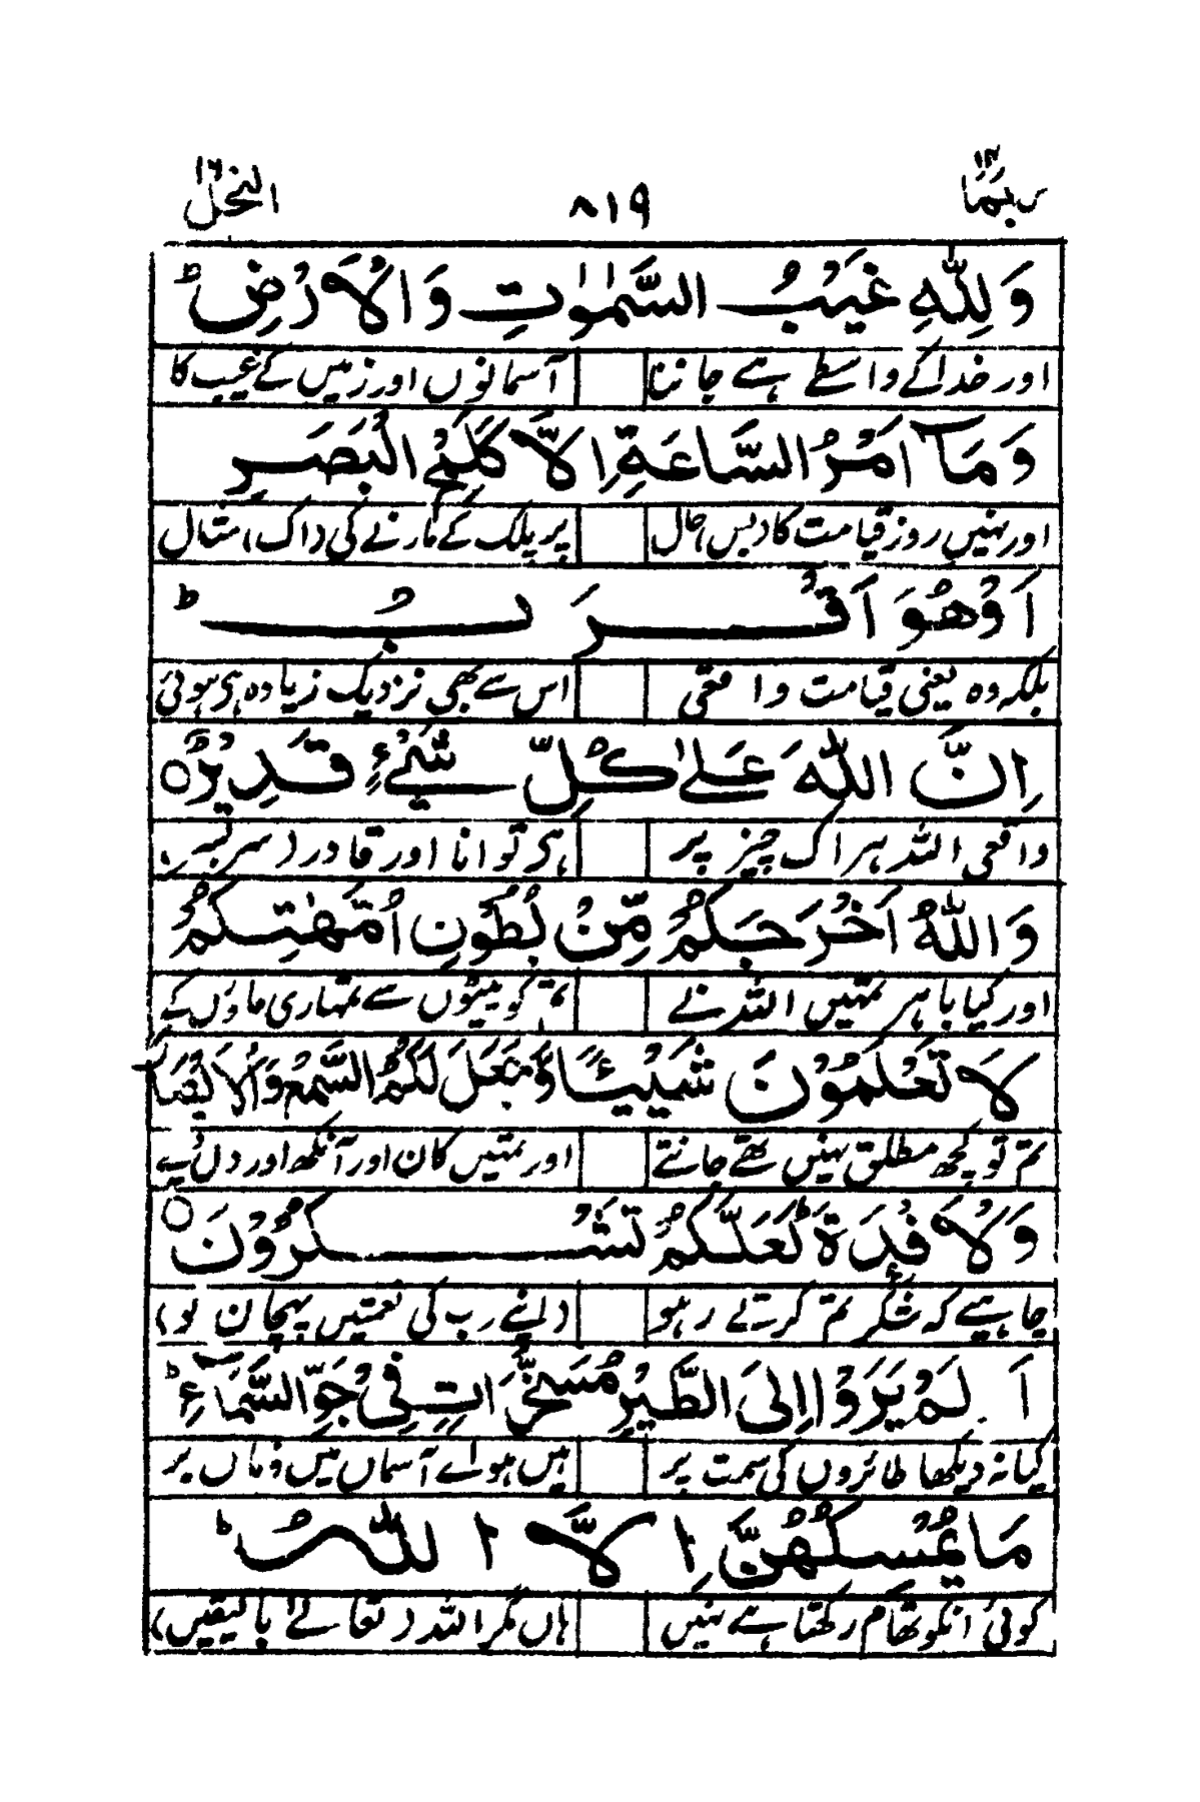 ربما ۱۴ ۸۱۹ النحل ۱۶
وَلِلّٰهِ غَيْبُ السَّمٰوٰتِ وَالْاَرْضِ ؕ
اور خدا کے واسطے ہے جاننا آسمانوں اور زمیں کے غیب کا
وَمَاۤ اَمْرُ السَّاعَةِ اِلَّا كَلَمْحِ الْبَصَرِ
اور نہیں روز قیامت کا (بس) حال پر پلک کے مارنے کی (اک) مثال
اَوْ هُوَ اَقْرَبُ ؕ
بلکہ وہ یعنی قیامت واقعی اس سے بھی نزدیک زیادہ ہی ہوئی
اِنَّ اللّٰهَ عَلٰى كُلِّ شَيْءٍ قَدِيْرٌ ○
واقعی اللہ ہر اک چیز پر ہے توانا اور قادر (سر بسر)
وَاللّٰهُ اَخْرَجَكُمْ مِّنْ بُطُوْنِ اُمَّهٰتِكُمْ
اور کیا باہر تمہیں اللہ نے تم کو پیٹوں سے تمہاری ماؤں کے
لَا تَعْلَمُوْنَ شَيْئًا وَّجَعَلَ لَكُمُ السَّمْعَ وَالْاَبْصَارَ
تم تو کچھ مطلق نہیں تھے جانتے اور تمہیں کان اور آنکھ اور دل دیے
وَالْاَفْـِٕدَةَ ؕ لَعَلَّكُمْ تَشْكُرُوْنَ ○
چاہیے کہ شکر تم کرتے رہو (اپنے رب کی نعمتیں پہچان لو)
اَلَمْ يَرَوْا اِلَى الطَّيْرِ مُسَخَّرٰتٍ فِيْ جَوِّ السَّمَآءِ ؕ
کیا نہ دیکھا طائروں کی سمت پر ہیں ہوائے آسماں میں وہاں پر
مَا يُمْسِكُهُنَّ اِلَّا اللّٰهُ ؕ
کوئی انکو تھام رکھتا ہے نہیں ہاں مگر اللہ (تعالےٰ بالیقیں)